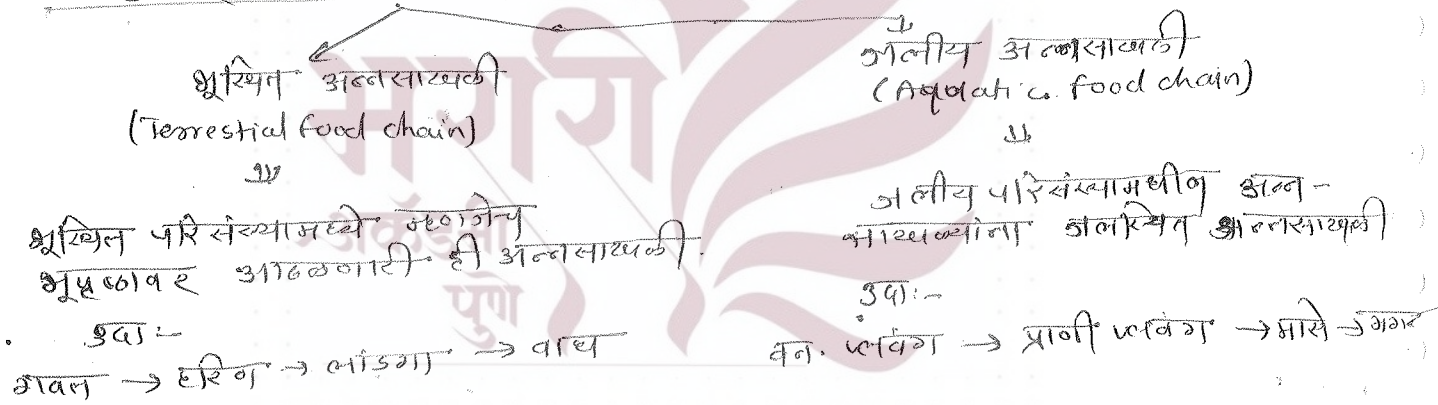 भूस्थित अन्नसाखळी
(Terrestial food chain)
भूस्थित परिसंस्थामध्ये म्हणजेच
भूपृष्ठावर आढळणारी ही अन्नसाखळी.
उदा:-
गवत → हरिण → लांडगा → वाघ
जलीय अन्नसाखळी
(Aquatic food chain)
जलीय परिसंस्थामधील अन्न-
साखळ्यांना जलस्थित अन्नसाखळी
उदा:-
वन. प्लवंग → प्राणी प्लवंग → मासे → मगर
अकॅडमी
पुणे